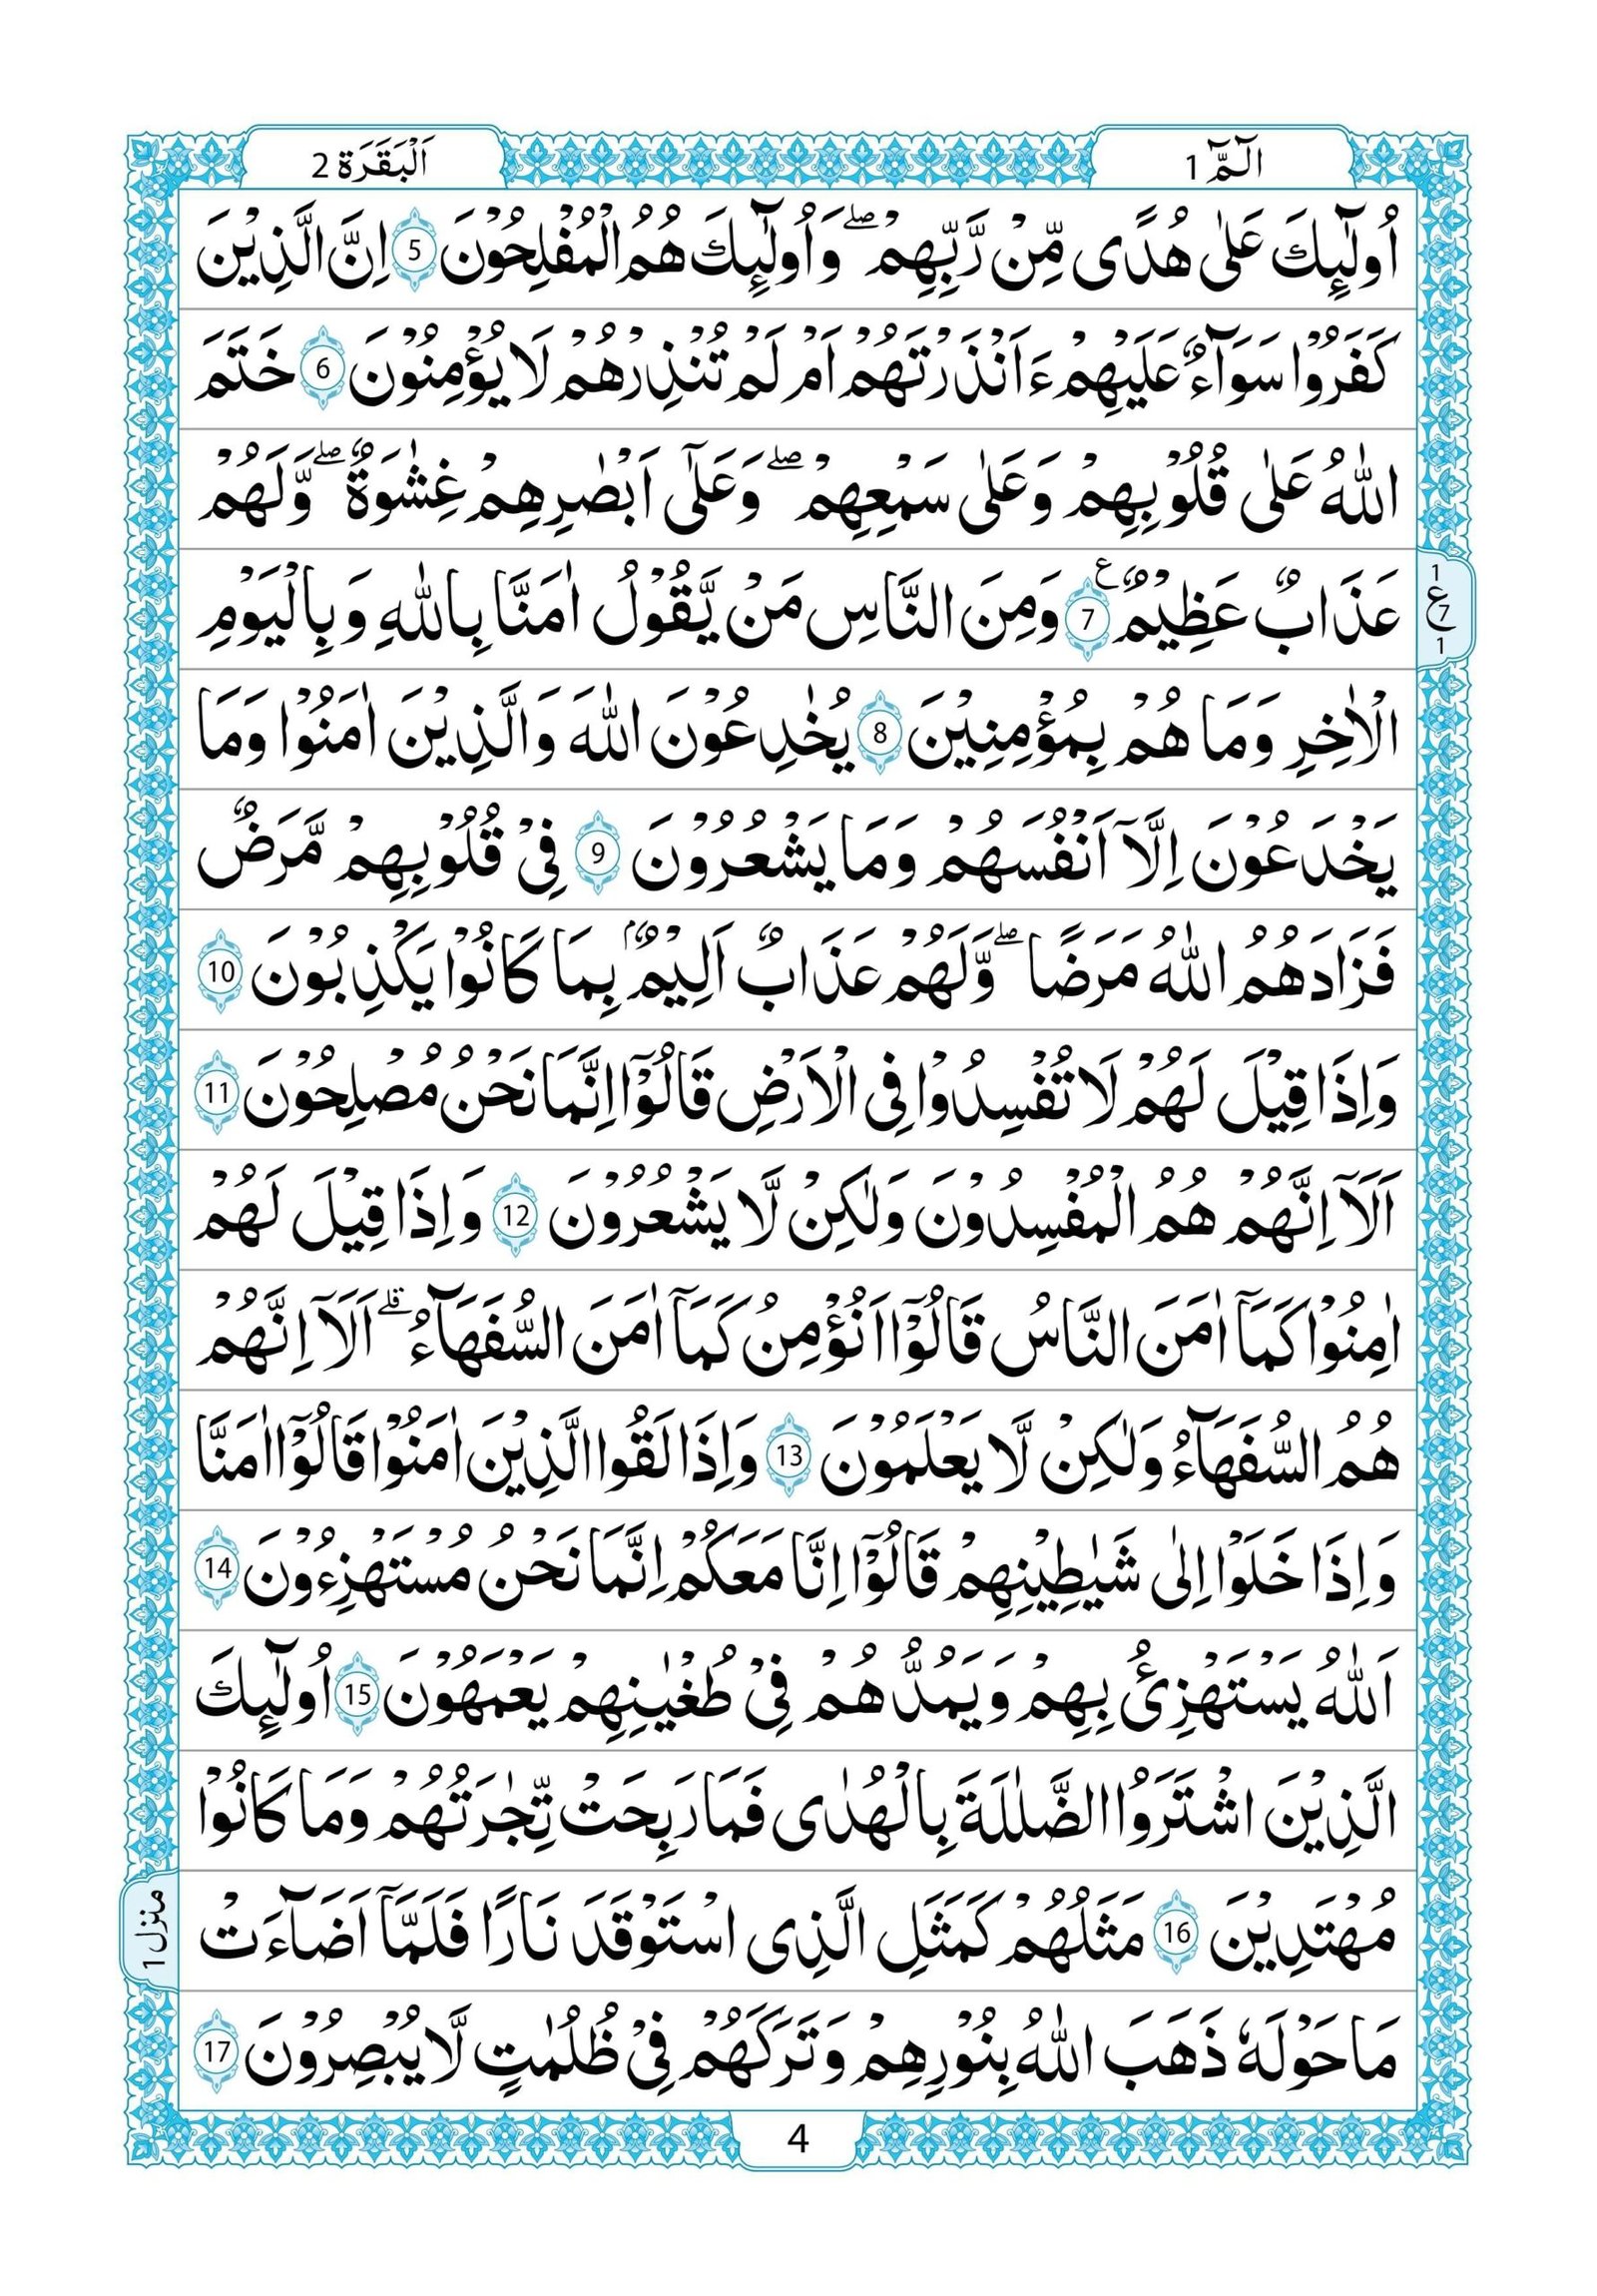 الٓمّٓ 1
اَلْبَقَرَة 2
اُولٰٓئِكَ عَلٰى هُدًى مِّنْ رَّبِّهِمْ ۖ وَاُولٰٓئِكَ هُمُ الْمُفْلِحُوْنَ 5 اِنَّ الَّذِيْنَ
كَفَرُوْا سَوَآءٌ عَلَيْهِمْ ءَاَنْذَرْتَهُمْ اَمْ لَمْ تُنْذِرْهُمْ لَا يُؤْمِنُوْنَ 6 خَتَمَ
اللّٰهُ عَلٰى قُلُوْبِهِمْ وَعَلٰى سَمْعِهِمْ ۖ وَعَلٰٓى اَبْصٰرِهِمْ غِشٰوَةٌ ۖ وَّلَهُمْ
عَذَابٌ عَظِيْمٌ ع 7 وَمِنَ النَّاسِ مَنْ يَّقُوْلُ اٰمَنَّا بِاللّٰهِ وَبِالْيَوْمِ
1
ع
7
1
الْاٰخِرِ وَمَا هُمْ بِمُؤْمِنِيْنَ 8 يُخٰدِعُوْنَ اللّٰهَ وَالَّذِيْنَ اٰمَنُوْا وَمَا
يَخْدَعُوْنَ اِلَّآ اَنْفُسَهُمْ وَمَا يَشْعُرُوْنَ 9 فِيْ قُلُوْبِهِمْ مَّرَضٌ
فَزَادَهُمُ اللّٰهُ مَرَضًا ۖ وَّلَهُمْ عَذَابٌ اَلِيْمٌۢ بِمَا كَانُوْا يَكْذِبُوْنَ 10
وَاِذَا قِيْلَ لَهُمْ لَا تُفْسِدُوْا فِى الْاَرْضِ قَالُوْٓا اِنَّمَا نَحْنُ مُصْلِحُوْنَ 11
اَلَآ اِنَّهُمْ هُمُ الْمُفْسِدُوْنَ وَلٰكِنْ لَّا يَشْعُرُوْنَ 12 وَاِذَا قِيْلَ لَهُمْ
اٰمِنُوْا كَمَآ اٰمَنَ النَّاسُ قَالُوْٓا اَنُؤْمِنُ كَمَآ اٰمَنَ السُّفَهَآءُ ۗ اَلَآ اِنَّهُمْ
هُمُ السُّفَهَآءُ وَلٰكِنْ لَّا يَعْلَمُوْنَ 13 وَاِذَا لَقُوا الَّذِيْنَ اٰمَنُوْا قَالُوْٓا اٰمَنَّا
وَاِذَا خَلَوْا اِلٰى شَيٰطِيْنِهِمْ قَالُوْٓا اِنَّا مَعَكُمْ اِنَّمَا نَحْنُ مُسْتَهْزِءُوْنَ 14
اَللّٰهُ يَسْتَهْزِئُ بِهِمْ وَيَمُدُّهُمْ فِيْ طُغْيٰنِهِمْ يَعْمَهُوْنَ 15 اُولٰٓئِكَ
الَّذِيْنَ اشْتَرَوُا الضَّلٰلَةَ بِالْهُدٰى فَمَا رَبِحَتْ تِّجٰرَتُهُمْ وَمَا كَانُوْا
مُهْتَدِيْنَ 16 مَثَلُهُمْ كَمَثَلِ الَّذِى اسْتَوْقَدَ نَارًا فَلَمَّآ اَضَآءَتْ
منزل 1
مَا حَوْلَهٗ ذَهَبَ اللّٰهُ بِنُوْرِهِمْ وَتَرَكَهُمْ فِيْ ظُلُمٰتٍ لَّا يُبْصِرُوْنَ 17
4